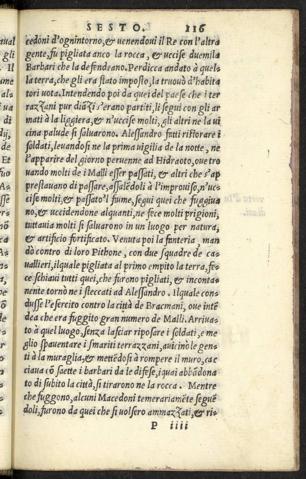 SESTO. 116
cedoni d'ognintorno, & uenendoui il Re con l'altra
gente, fu pigliata anco la rocca, & uccise dumila
Barbari che la defendeano. Perdicca andato à quel
la terra, che gli era stato imposto, la truouò d'habita
tori uota. Intendendo poi da quei del paese che i ter
razzani pur diãzi s'erano partiti, li segui con gli ar
mati à la liggiera, & n'uccise molti, gli altri ne la ui
cina palude si saluarono. Alessandro fatti ristorare i
soldati, leuandosi ne la prima vigilia de la notte, ne
l'apparire del giorno peruenne ad Hidraote, oue tro
uando molti de i Malli esser passati, & altri che s'ap
prestauano di passare, assaledoli à l'improuiso, n'uc
cise molti, & passato'l fiume, segui quei che fuggiua
no, & uccidendone alquanti, ne fece molti prigioni,
tuttauia molti si saluarono in un luogo per natura,
& artificio fortificato. Venuta poi la fanteria man
dò contro di loro Pithone, con due squadre de ca-
uallieri, il quale pigliata al primo empito la terra, fe
ce schiaui tutti quei, che furono pigliati, & inconta-
nente tornò ne i steccati ad Alessandro. Il quale con
dusse l'esercito contro la città de Bracmani, oue intẽ
dea che era fuggito gran numero de Malli. Arriua-
to à quel luogo, senza lasciar riposare i soldati, e me
glio spauentare i smariti terrazzani, auicinò le gen
ti à la muraglia, & mettẽdosi à rompere il muro, cac
ciaua cõ saette i barbari da le difese, i quai abbãdona
to di subito la città, si tirarono ne la rocca. Mentre
che fuggono, alcuni Macedoni temerariamẽte seguẽ
doli, furono da quei che si uolsero ammazzati, & ri-
P iiii